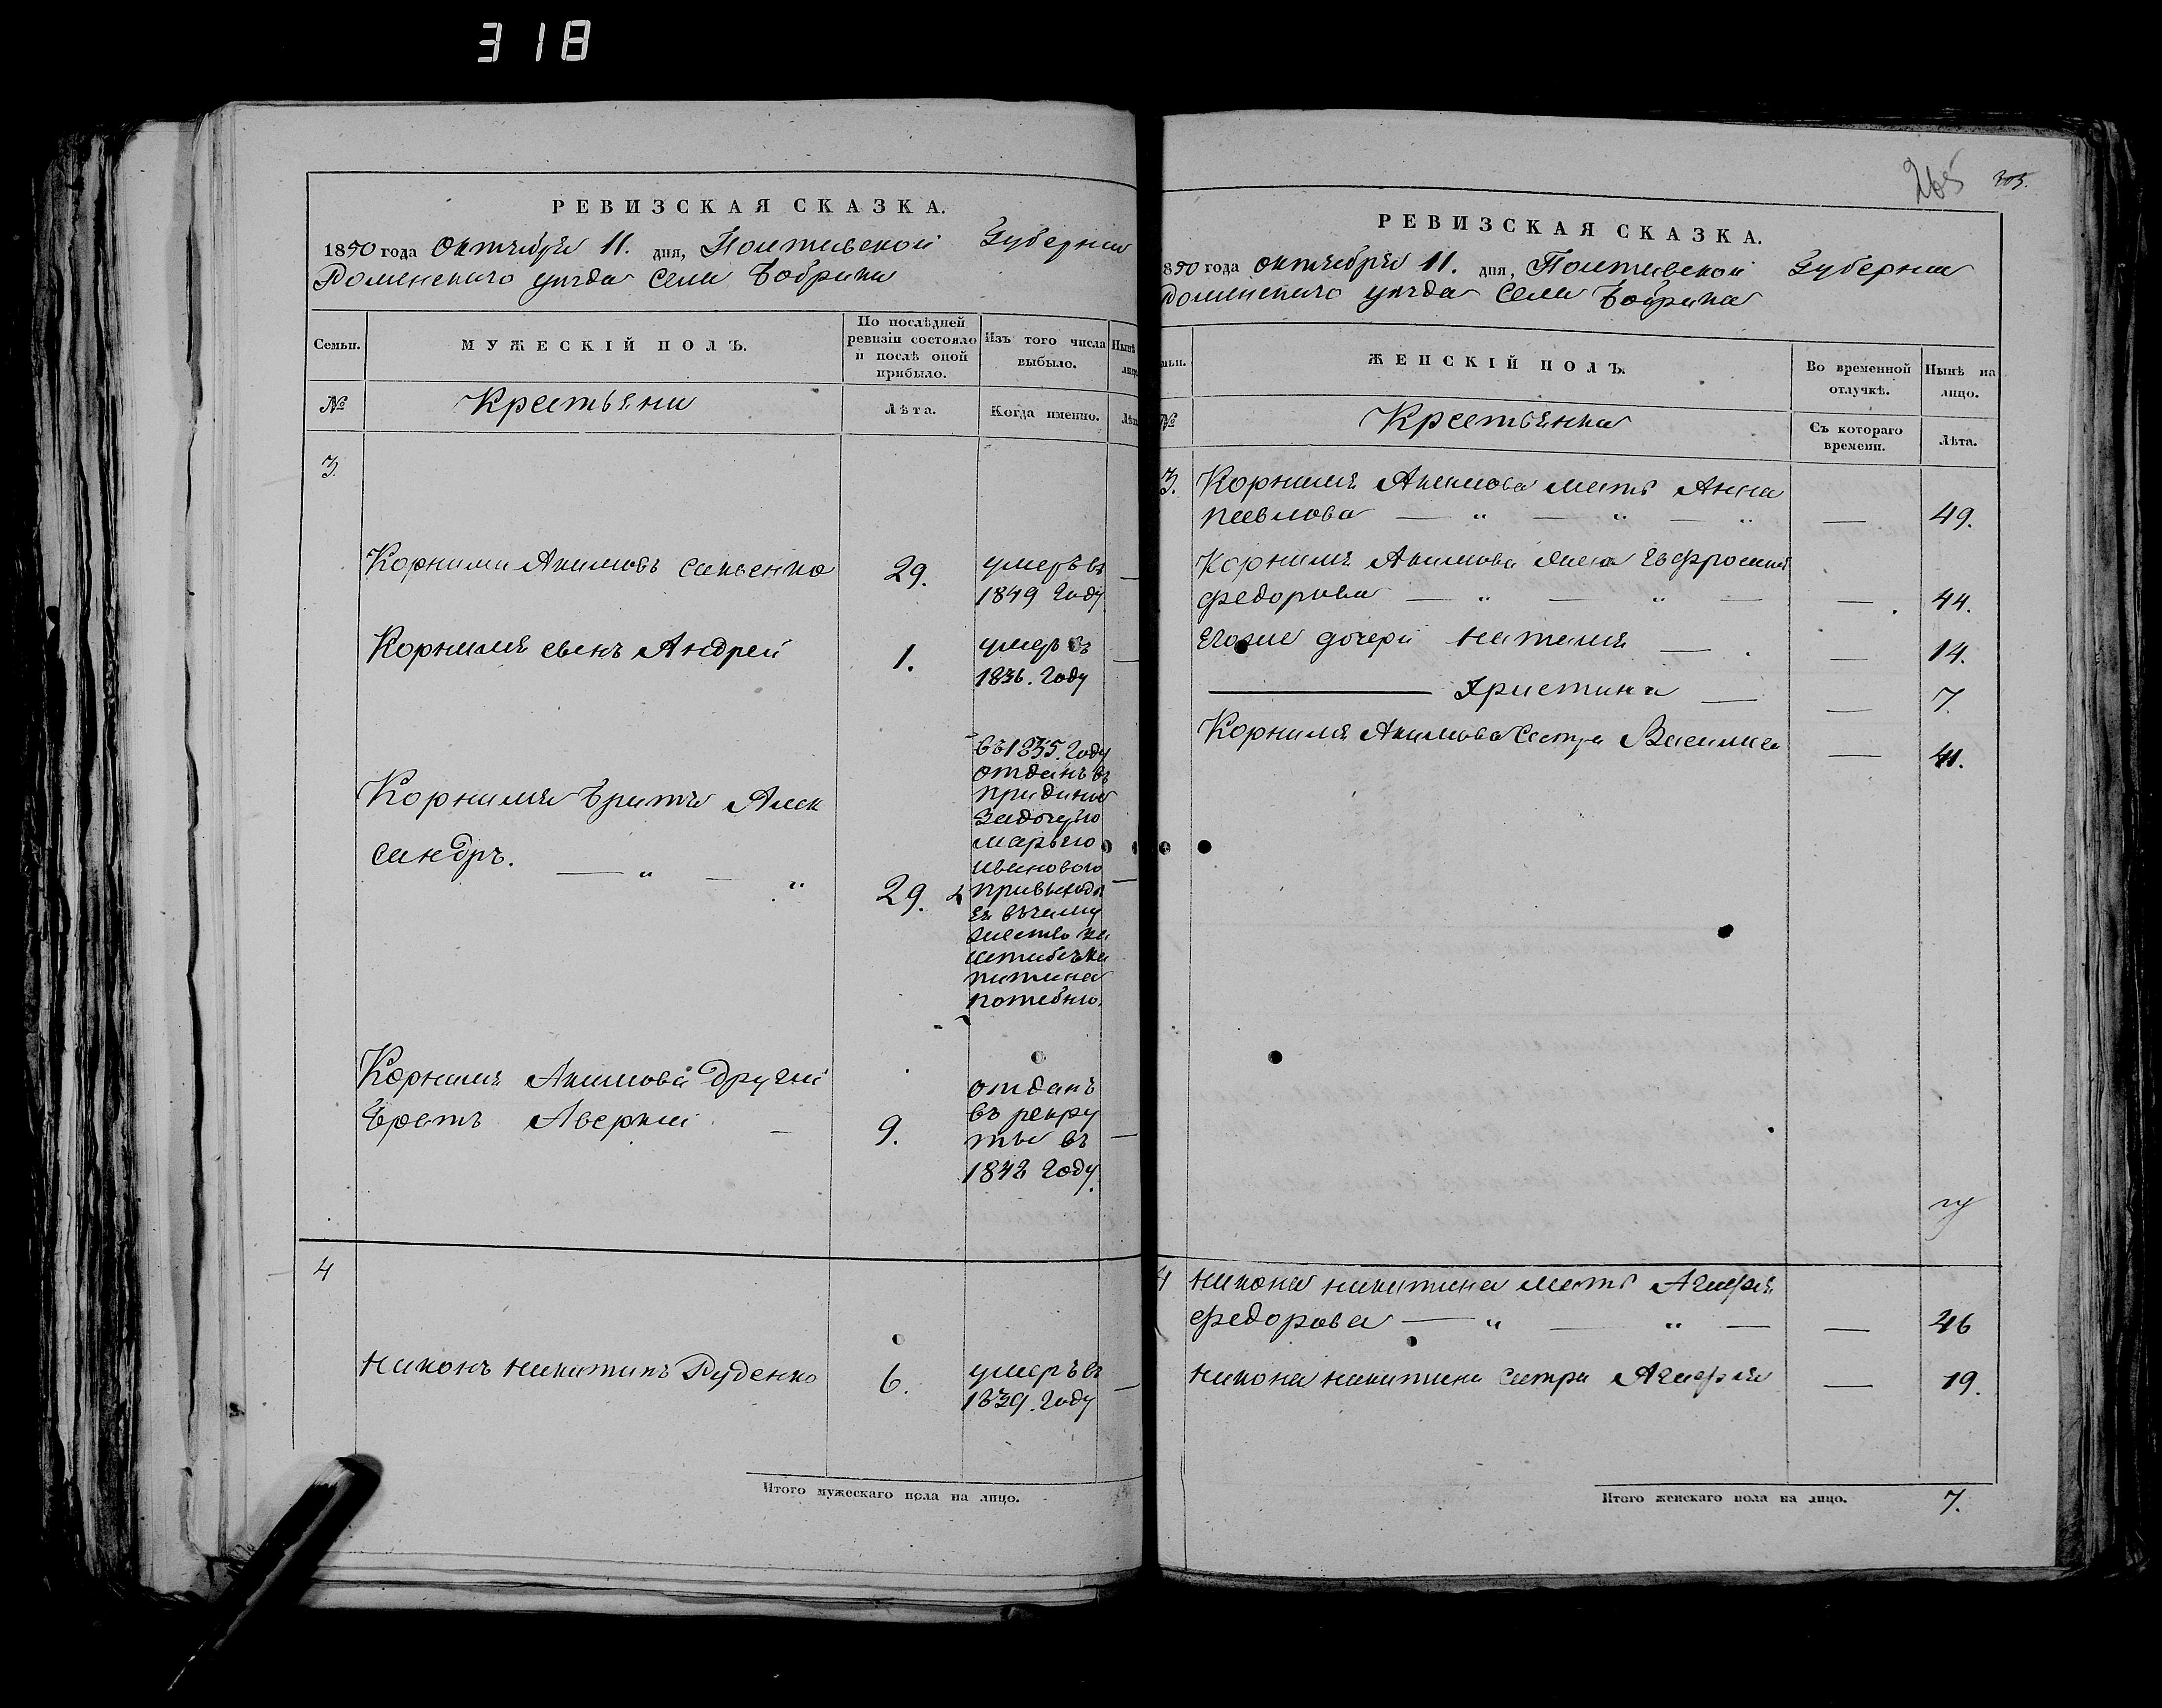 318
РЕВИЗСКАЯ СКАЗКА.
1850 года Октября 11. дня, Полтавской Губернии
Роменскаго уезда села Бобрика
Семьи.
МУЖЕСКІЙ ПОЛЪ.
По послѣдней
ревизіи состояло
и послѣ оной
прибыло.
Изъ того числа
выбыло.
Нынѣ
№
Крестьяни
Лѣта.
Когда именно.
3.
Корнилий Акимовъ Савенко 29. умеръ въ
1849 Году
Корнилия сынъ Андрей 1. умеръ въ
1836. Году
въ 1835. Году
отданъ въ
Корнилия братъ Алек
сандръ. 29.
за дочерью
Марьею
Ивановою
Корнилия Акимова другий
братъ Аверкий 9.
отданъ
въ рекру
ты въ
1842 Году.
4
Никонъ Никитинъ Руденко 6. умеръ въ
1839. Году
Итого мужескаго пола на лицо.
265 303.
РЕВИЗСКАЯ СКАЗКА.
850 года октября 11. дня, Полтавской Губернии
Роменскаго уезда села Бобрика
ЖЕНСКІЙ ПОЛЪ.
Во временной
отлучкѣ.
Нынѣ на
лицо.
№
Крестьянки
Съ котораго
времени.
Лѣта.
3. Корнилия Акимова мать Анна
Павлова 49.
Корнилия Акимова жена Евфросиния
Федорова 44.
Егоже дочери Наталия 14.
Христина 7.
Корнилия Акимова сестра Василиса 41.
4 Никона Никитина мать Агафия
Федорова 46
Никона Никитина сестра Агафия 19.
Итого женскаго пола на лицо. 7.